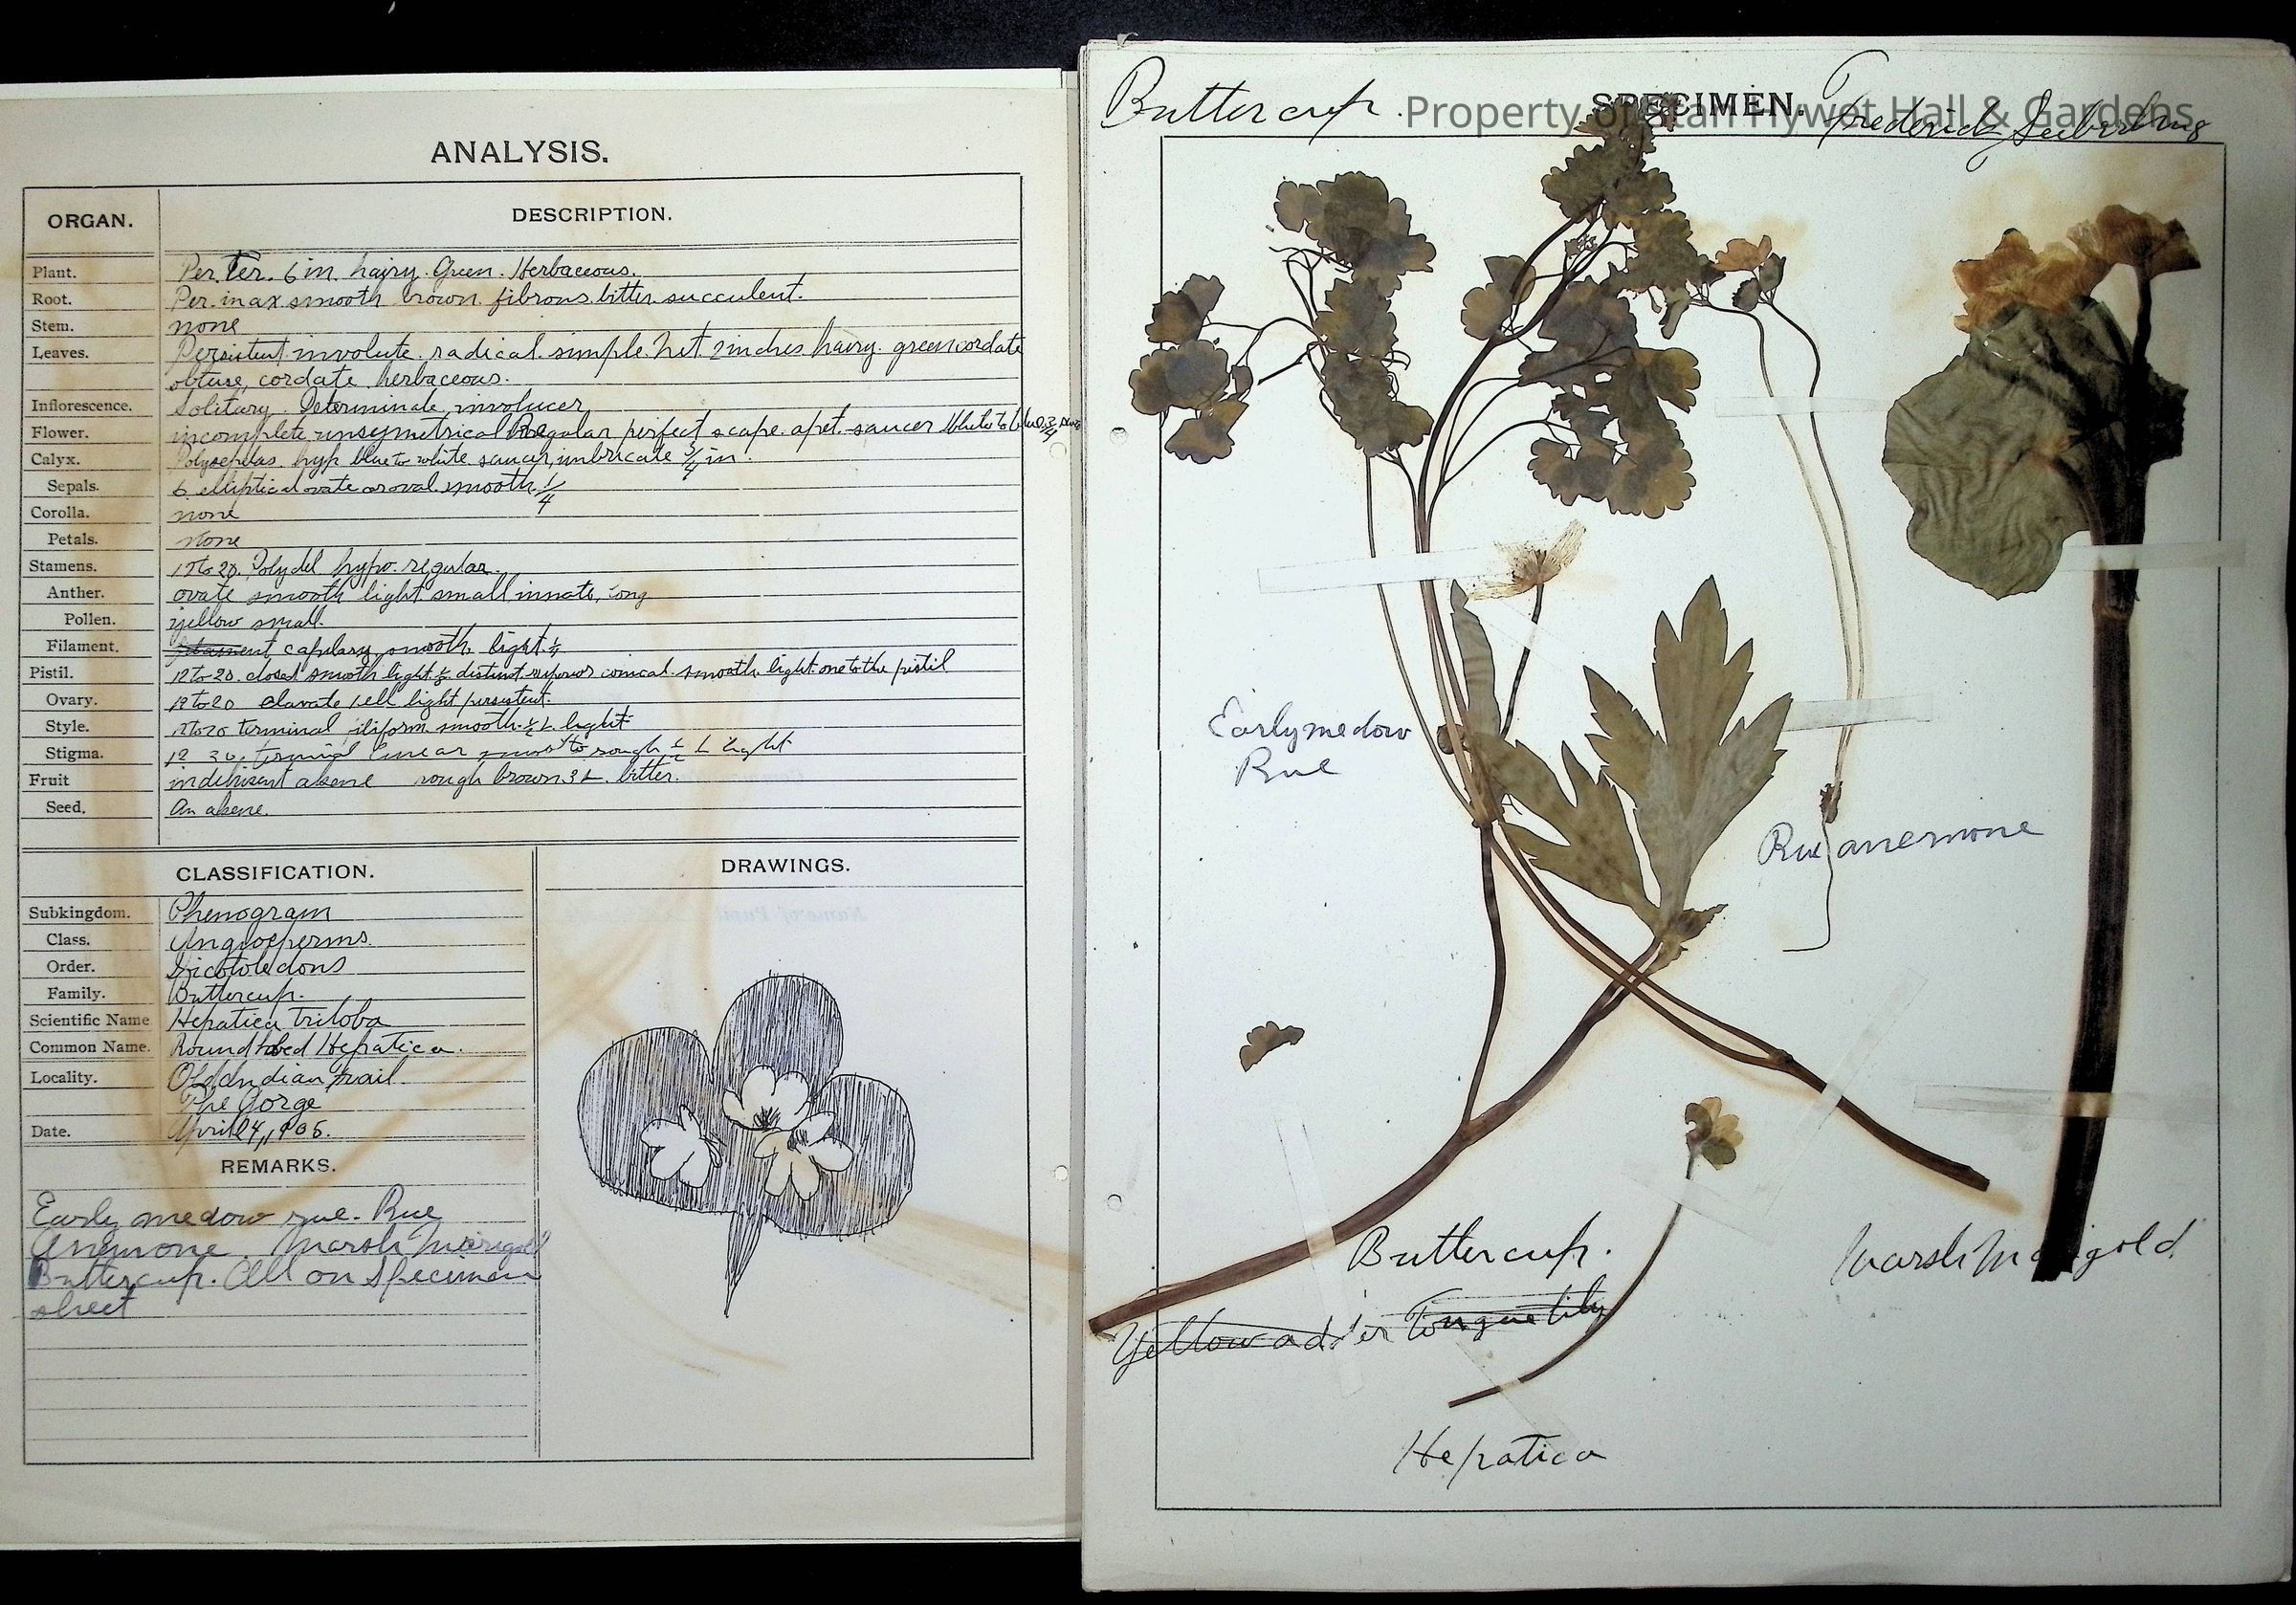 ANALYSIS.
ORGAN. DESCRIPTION.
Plant. Per. Ter. 6 in. hairy. Green. Herbaceous.
Root. Per. inax smooth brown fibrous bitter succulent.
Stem. none
Leaves. Persistent involute. radical. simple. net. 2 inches hairy. green cordate
obtuse, cordate herbaceous.
Inflorescence. Solitary. Determinate involucer
Flower. incomplete unsymetrical regular perfect scape. apet. saucer White to blue 3/4
Calyx. Polysepulas. hyp blue to white saucer, imbricate 3/4 in.
Sepals. 6 elliptical ovate or oval smooth 1/4
Corolla. none
Petals. none
Stamens. to 20. Polydel hypo. regular.
Anther. ovate smooth light small innate, long
Pollen. yellow small.
Filament. capilary, smooth, light. 1/4
Pistil. 12 to 20. closed smooth light distinct superior conical. smooth light. one to the pistil
Ovary. 12 to 20 clavate 1 cell light persistent.
Style. 12 to 20 terminal filiform. smooth. L light
Stigma. 12 linear smooth to rough L light
Fruit indehisent akene rough brown 3 L. bitter.
Seed. An akene.
CLASSIFICATION. DRAWINGS.
Subkingdom. Phenogram
Class. Angiosperms.
Order. Dicotoledons
Family. Buttercup.
Scientific Name Hepatica triloba
Common Name. Round lobed Hepatica.
Locality. Old Indian trail.
The Gorge
Date. April 24, 1905.
REMARKS.
Early medow rue. Rue
Anemone. Marsh Marigold
Buttercup. All on Specimen
sheet
Buttercup. SPECIMEN. Frederick Seiberling
Property of Stan Hywet Hall & Gardens
Early medow
Rue
Rue anemone
Buttercup.
Marsh Marigold.
Yellow adder Tongue lily
Hepatica